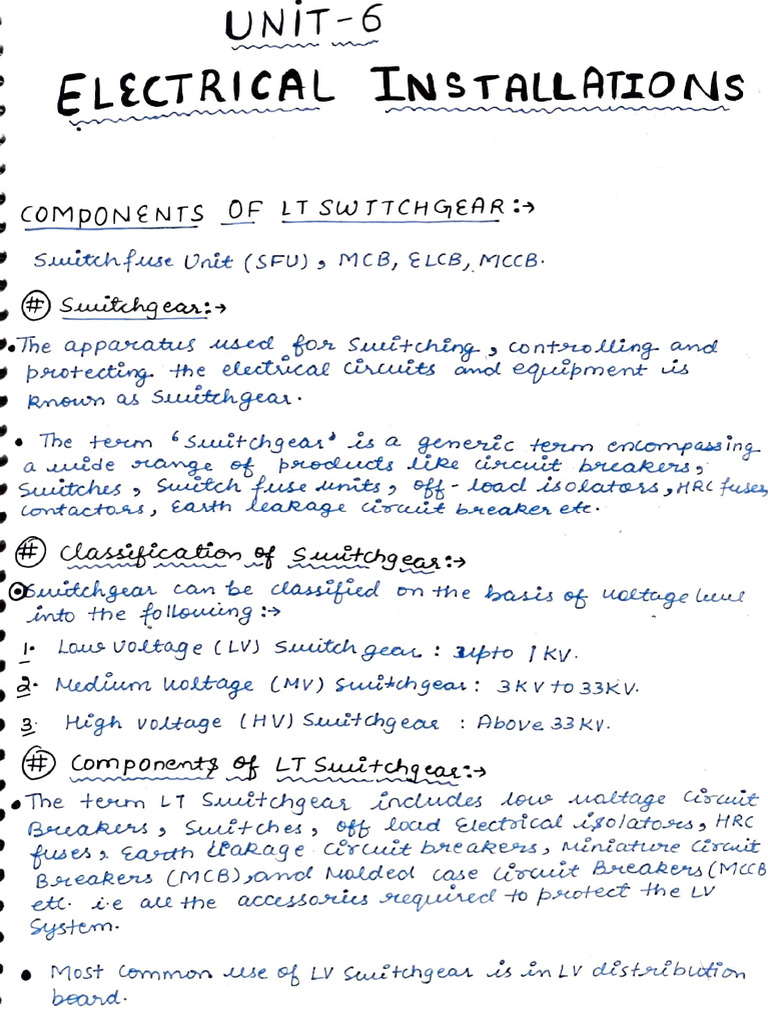 UNIT-6
ELECTRICAL INSTALLATIONS
COMPONENTS OF LT SWTTCHGEAR:→
Switchfuse Unit (SFU), MCB, ELCB, MCCB.
# Switchgear:→
•The apparatus used for Switching, controlling and
protecting the electrical circuits and equipment is
known as Switchgear.
• The term 'Switchgear' is a generic term encompassing
a wide range of products like circuit breakers,
Switches, Switch fuse units, off-load isolators, HRC fuses,
contactors, Earth leakage circuit breaker etc.
# Classification of Switchgear:→
Switchgear can be classified on the basis of voltage level
into the following:→
1. Low voltage (LV) Switchgear : upto 1KV.
2. Medium Voltage (MV) Switchgear: 3KV to 33KV.
3. High voltage (HV) Switchgear : Above 33KV.
# Components of LT Switchgear:→
•The term LT Switchgear includes low voltage Circuit
Breakers, Switches, off load Electrical isolators, HRC
fuses, Earth leakage Circuit breakers, Miniature Circuit
Breakers (MCB), and Molded case Circuit Breakers (MCCB
etc. i.e all the accessories required to protect the LV
System.
• Most Common use of LV Switchgear is in LV distribution
board.